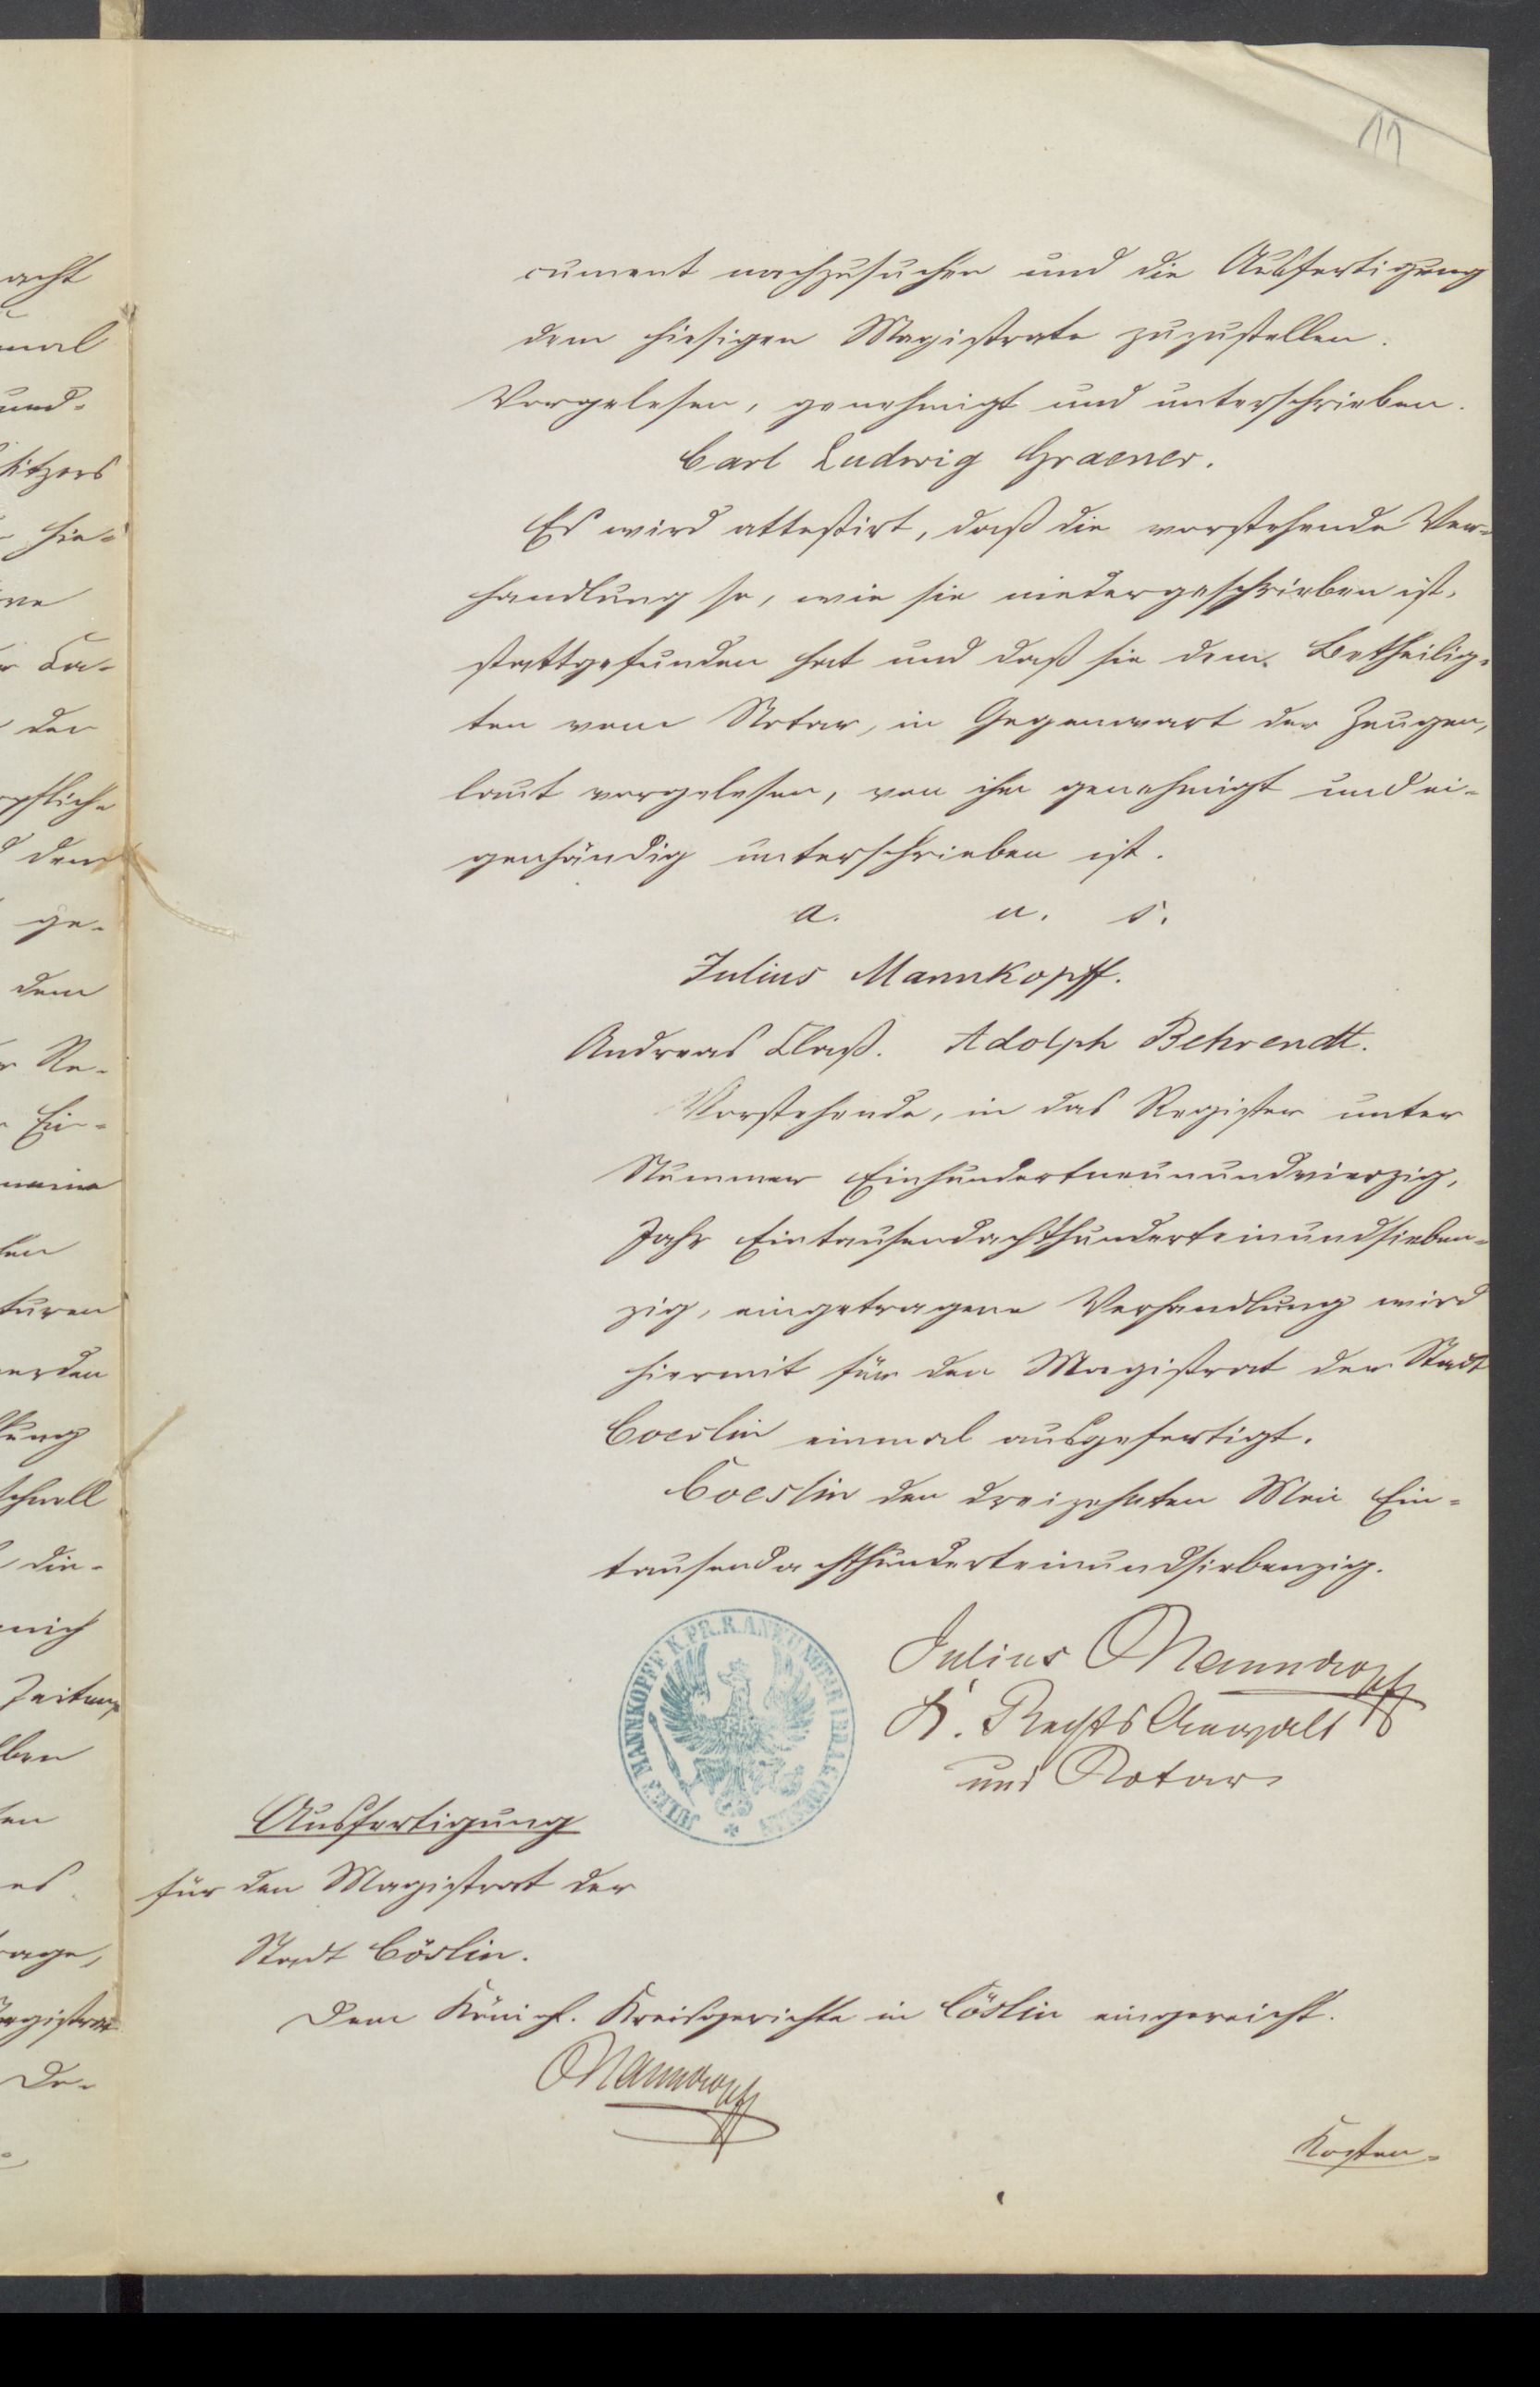 11
cument nachzusuchen und die Ausfertigung
dem hiesigen Magistrate zuzustellen.
Vorgelesen, genehmigt und unterschrieben.
Carl Ludwig Graener.
Es wird attestirt, daß die vorstehende Ver-
handlung so, wie sie niedergeschrieben ist,
stattgefunden hat und daß sie dem Betheilig-
ten vom Notar, in Gegenwart der Zeugen,
laut vorgelesen, von ihm genehmigt und ei-
genhändig unterschrieben ist.
a. u. s.
Julius Mannkopff.
Andreas Claß. Adolph Behrendt.
Vorstehende, in das Register unter
Nummer Einhundertneunundvierzig,
Jahr Eintausendachthunderteinundsieben-
zig, eingetragene Verhandlung wird
hiermit für den Magistrat der Stadt
Coeslin einmal ausgefertigt.
Coeslin den dreizehnten Mai Ein-
tausendachthunderteinundsiebenzig.
Julius Mannkopff
K. Rechts Anwalt
und Notar
JULIUS MANNKOPFF K. PR. R. ANW. U. NOTAR
Ausfertigung
für den Magistrat der
Stadt Cöslin.
Dem Königl. Kreisgerichte in Cöslin eingereicht.
Mannkopff
Kosten-
acht
mal
und-
sitzers
hie-
La-
der
pfliche
dem
ge-
dem
Re-
Ein-
meine
turen
werden
schnell
die-
mich
Zeitung
lben
es
rage,
Magistrat
Do-